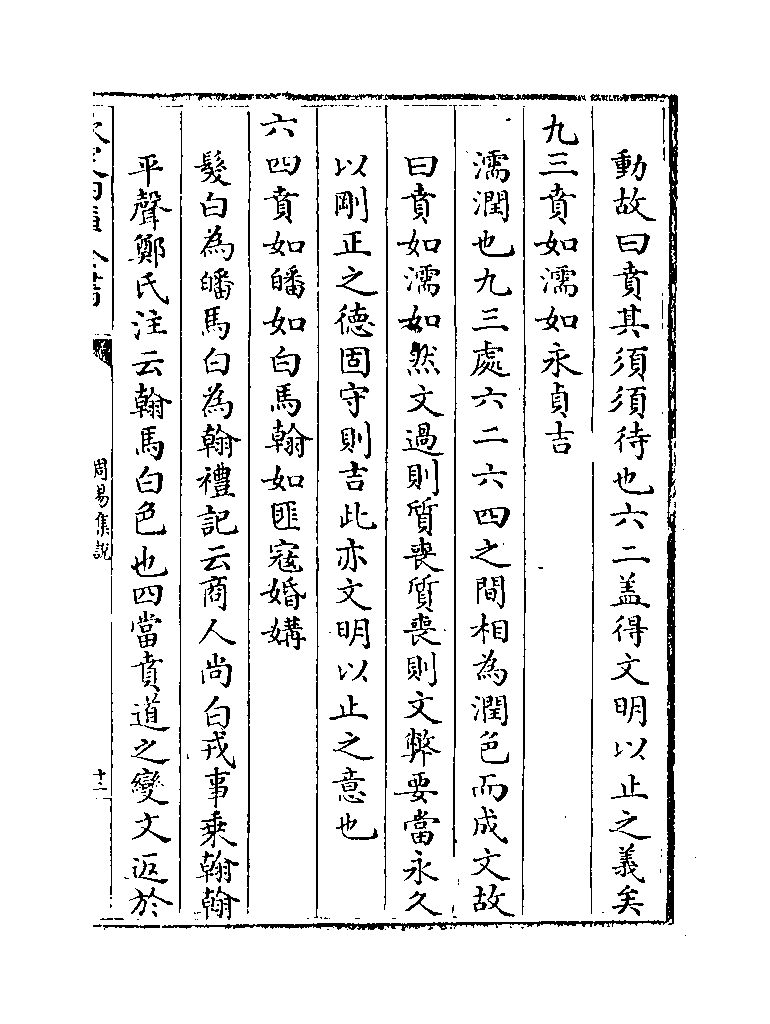 動故曰賁其須須待也六二盖得文明以止之義矣
九三賁如濡如永貞吉
濡潤也九三處六二六四之間相為潤色而成文故
曰賁如濡如然文過則質喪質喪則文弊要當永久
以剛正之德固守則吉此亦文明以止之意也
六四賁如皤如白馬翰如匪寇婚媾
髮白為皤馬白為翰禮記云商人尚白戎事乗翰翰
平聲鄭氏注云翰馬白色也四當賁道之變文返於
周易集說
十二